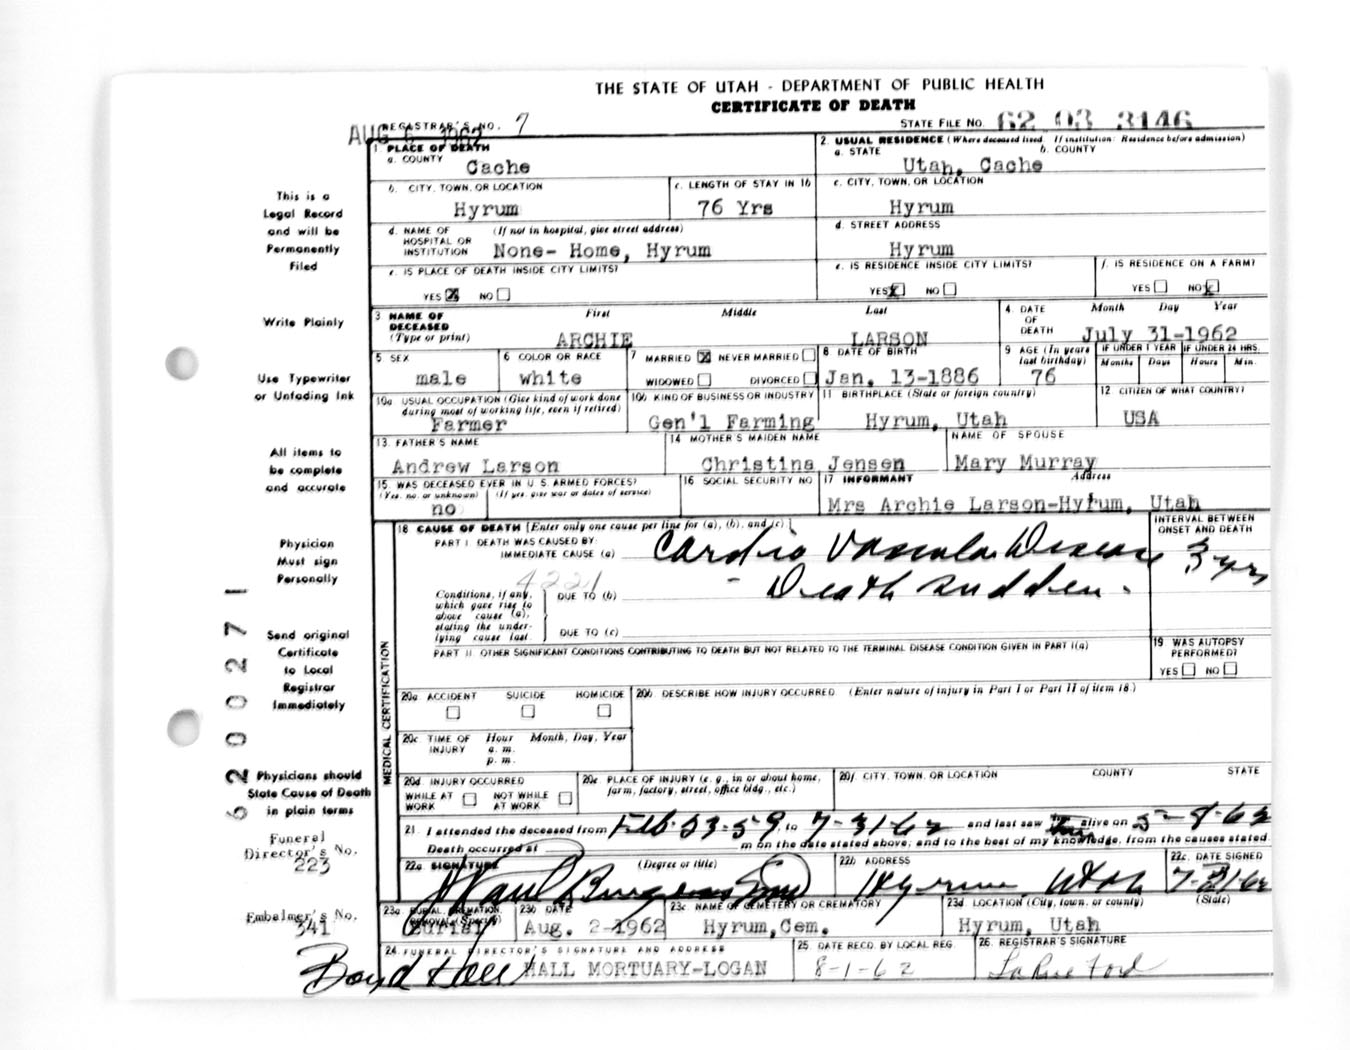 THE STATE OF UTAH - DEPARTMENT OF PUBLIC HEALTH
CERTIFICATE OF DEATH
AUG 6 1962 REGISTRAR'S NO. 7
STATE FILE NO. 62 03 3146
1. PLACE OF DEATH
a. COUNTY Cache
2. USUAL RESIDENCE (Where deceased lived. If institution: Residence before admission)
a. STATE b. COUNTY
Utah, Cache
b. CITY, TOWN, OR LOCATION Hyrum
c. LENGTH OF STAY IN 1b 76 Yrs
c. CITY, TOWN, OR LOCATION Hyrum
d. NAME OF HOSPITAL OR INSTITUTION (If not in hospital, give street address) None- Home, Hyrum
d. STREET ADDRESS Hyrum
e. IS PLACE OF DEATH INSIDE CITY LIMITS?
YES X NO
e. IS RESIDENCE INSIDE CITY LIMITS?
YES X NO
f. IS RESIDENCE ON A FARM?
YES NO X
3 NAME OF DECEASED (Type or print) First Middle Last
ARCHIE LARSON
4. DATE OF DEATH Month Day Year
July 31-1962
5 SEX male
6 COLOR OR RACE white
7 MARRIED X NEVER MARRIED
WIDOWED DIVORCED
8 DATE OF BIRTH Jan. 13-1886
9 AGE (In years last birthday) 76
IF UNDER 1 YEAR Months Days
IF UNDER 24 HRS. Hours Min.
10a USUAL OCCUPATION (Give kind of work done during most of working life, even if retired) Farmer
10b KIND OF BUSINESS OR INDUSTRY Gen'l Farming
11 BIRTHPLACE (State or foreign country) Hyrum, Utah
12 CITIZEN OF WHAT COUNTRY? USA
13. FATHER'S NAME Andrew Larson
14 MOTHER'S MAIDEN NAME Christina Jensen
NAME OF SPOUSE Mary Murray
15. WAS DECEASED EVER IN U. S. ARMED FORCES?
(Yes, no, or unknown) (If yes, give war or dates of service)
no
16 SOCIAL SECURITY NO
17 INFORMANT Address
Mrs Archie Larson-Hyrum, Utah
18 CAUSE OF DEATH [Enter only one cause per line for (a), (b), and (c).]
INTERVAL BETWEEN ONSET AND DEATH
PART I. DEATH WAS CAUSED BY:
IMMEDIATE CAUSE (a) Cardio Vascular Disease 3 yrs
4221
Conditions, if any, which gave rise to above cause (a), stating the underlying cause last
DUE TO (b) - Death sudden.
DUE TO (c)
PART II. OTHER SIGNIFICANT CONDITIONS CONTRIBUTING TO DEATH BUT NOT RELATED TO THE TERMINAL DISEASE CONDITION GIVEN IN PART I(a)
19 WAS AUTOPSY PERFORMED?
YES NO
MEDICAL CERTIFICATION
20a ACCIDENT SUICIDE HOMICIDE
20b DESCRIBE HOW INJURY OCCURRED (Enter nature of injury in Part I or Part II of item 18.)
20c TIME OF INJURY Hour Month, Day, Year
a. m.
p. m.
20d INJURY OCCURRED
WHILE AT WORK NOT WHILE AT WORK
20e PLACE OF INJURY (e. g., in or about home, farm, factory, street, office bldg., etc.)
20f. CITY, TOWN, OR LOCATION COUNTY STATE
21. I attended the deceased from Feb-23-59, to 7-31-62 and last saw him alive on 5-8-62
Death occurred at m on the date stated above; and to the best of my knowledge, from the causes stated
22a SIGNATURE (Degree or title)
22b ADDRESS Hyrum, Utah
22c. DATE SIGNED 7-31-62
23a BURIAL, CREMATION, REMOVAL (Specify) Burial
23b DATE Aug. 2-1962
23c NAME OF CEMETERY OR CREMATORY Hyrum, Cem.
23d LOCATION (City, town, or county) (State)
Hyrum, Utah
24 FUNERAL DIRECTOR'S SIGNATURE AND ADDRESS
Boyd Hall HALL MORTUARY-LOGAN
25 DATE RECD. BY LOCAL REG. 8-1-62
26. REGISTRAR'S SIGNATURE
LaRue Ford
This is a
Legal Record
and will be
Permanently
Filed
Write Plainly
Use Typewriter
or Unfading Ink
All items to
be complete
and accurate
Physician
Must sign
Personally
Send original
Certificate
to Local
Registrar
Immediately
Physicians should
State Cause of Death
in plain terms
Funeral
Director's No.
223
Embalmer's No.
341